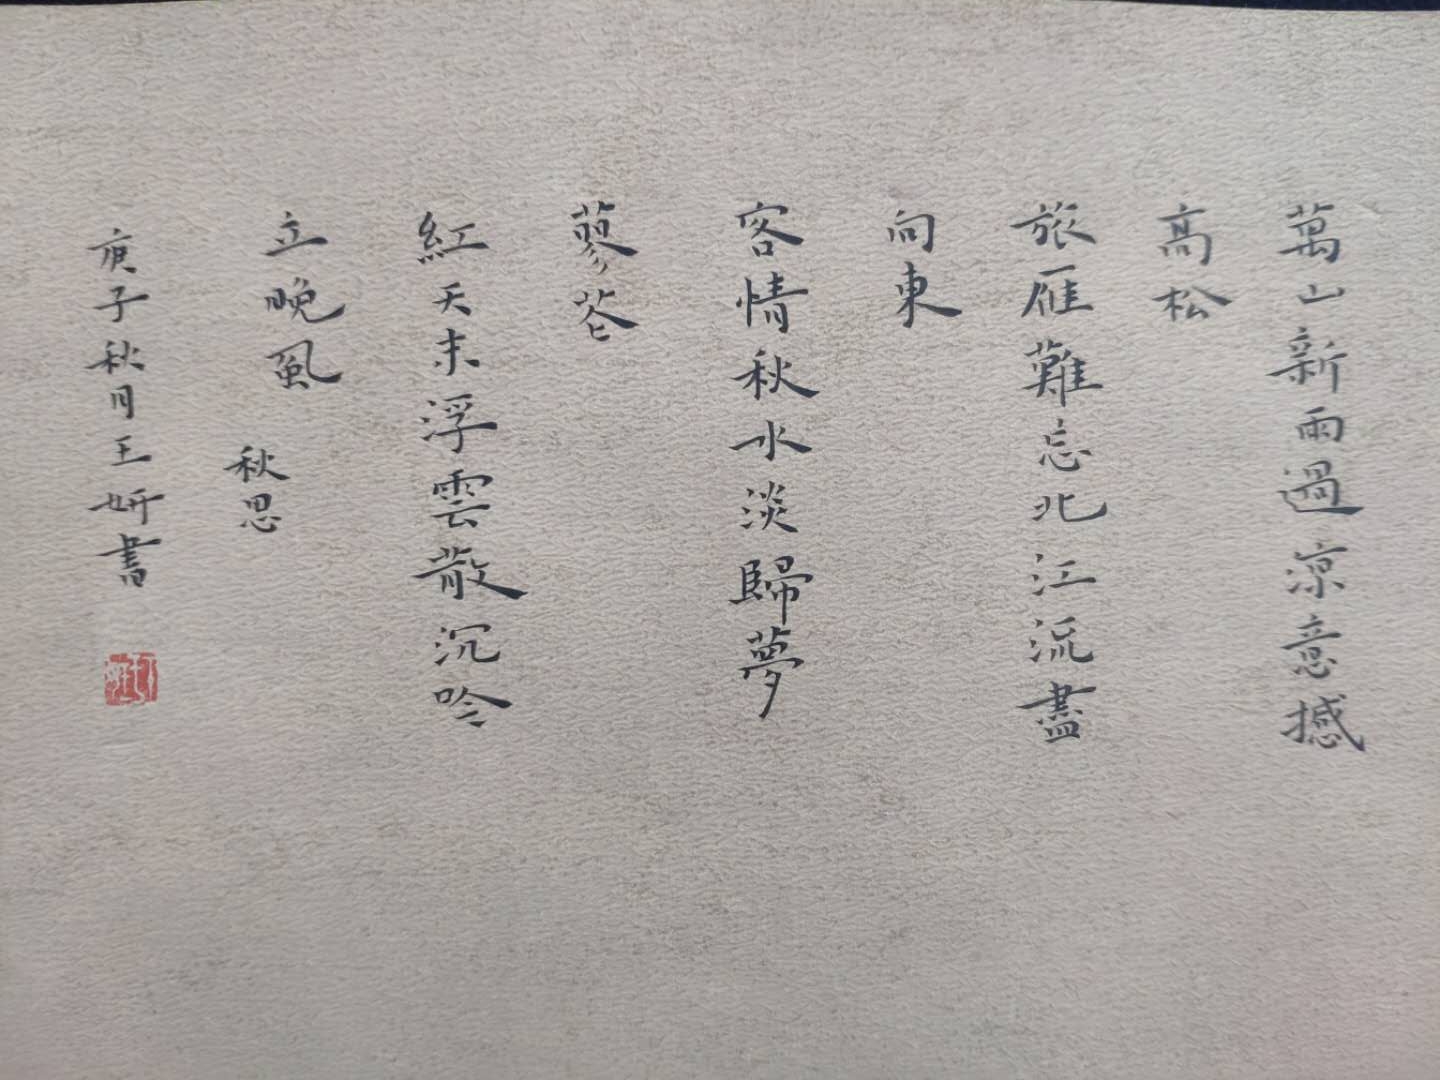 萬山新雨過涼意撼
高松
旅雁難忘北江流盡
向東
客情秋水淡歸夢
蓼花
紅天末浮雲散沉吟
立晚風
秋思
庚子秋月王妍書